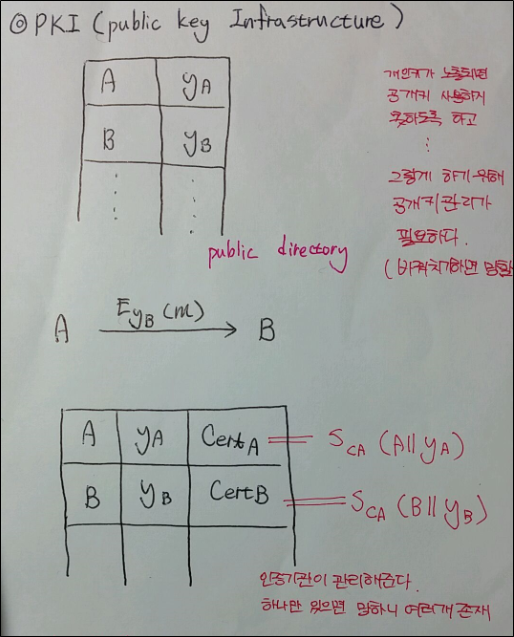 ◎ PKI (public key Infrastructure)
A y_A
B y_B
public directory
개인키가 노출되면
공개키 사용하지
못하도록 하고
⋮
그렇게 하기 위해
공개키 관리가
필요하다.
(바꿔치기하면 망함
A E_{y_B}(m) → B
A y_A Cert_A = S_CA (A||y_A)
B y_B Cert_B = S_CA (B||y_B)
인증기관이 관리해준다.
하나만 있으면 망하니 여러개 존재